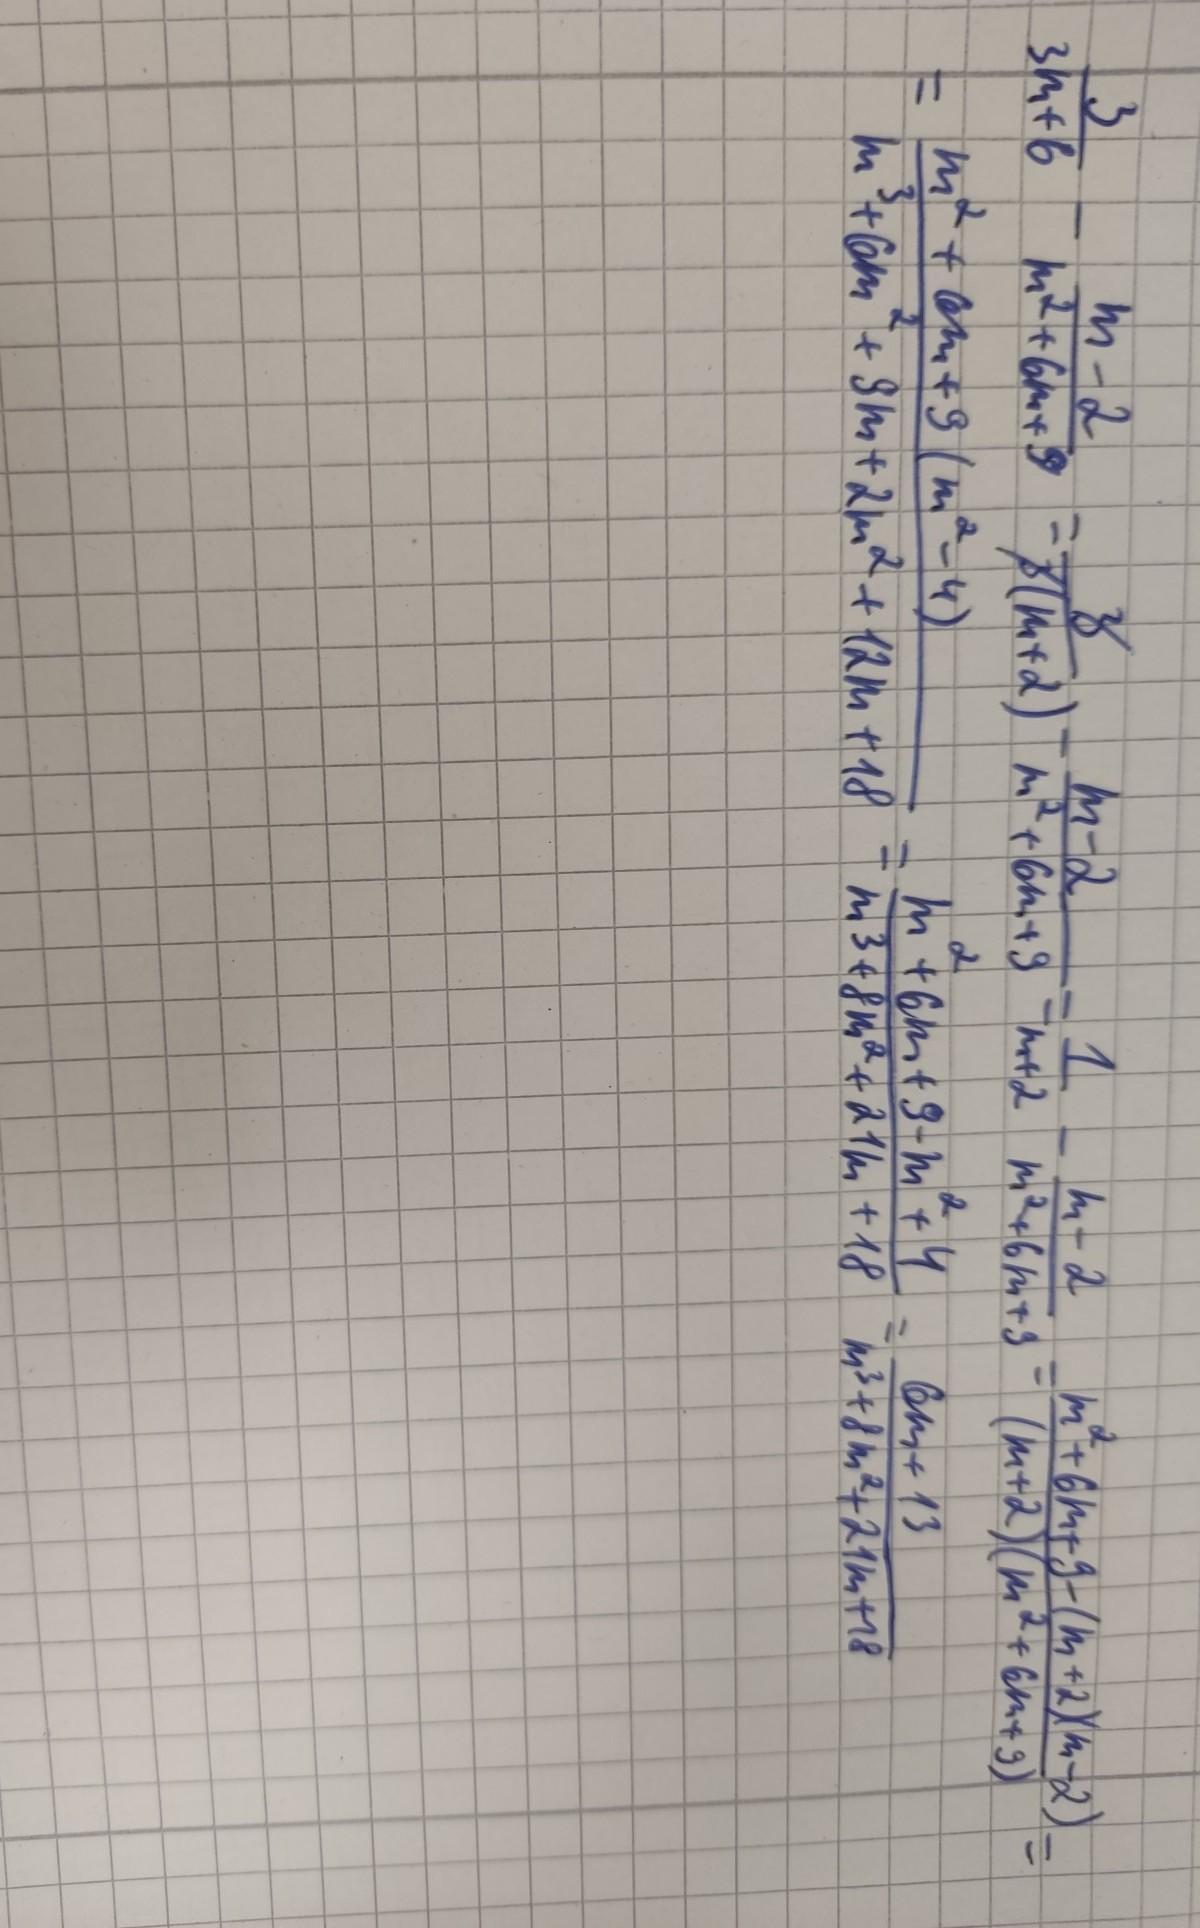 3/(3m+6) - (m-2)/(m²+6m+9) = 3/(3(m+2)) - (m-2)/(m²+6m+9) = 1/(m+2) - (m-2)/(m²+6m+9) = (m²+6m+9-(m+2)(m-2))/((m+2)(m²+6m+9)) =
= (m²+6m+9(m²-4))/(m³+6m²+9m+2m²+12m+18) = (m²+6m+9-m²+4)/(m³+8m²+21m+18) = (6m+13)/(m³+8m²+21m+18)